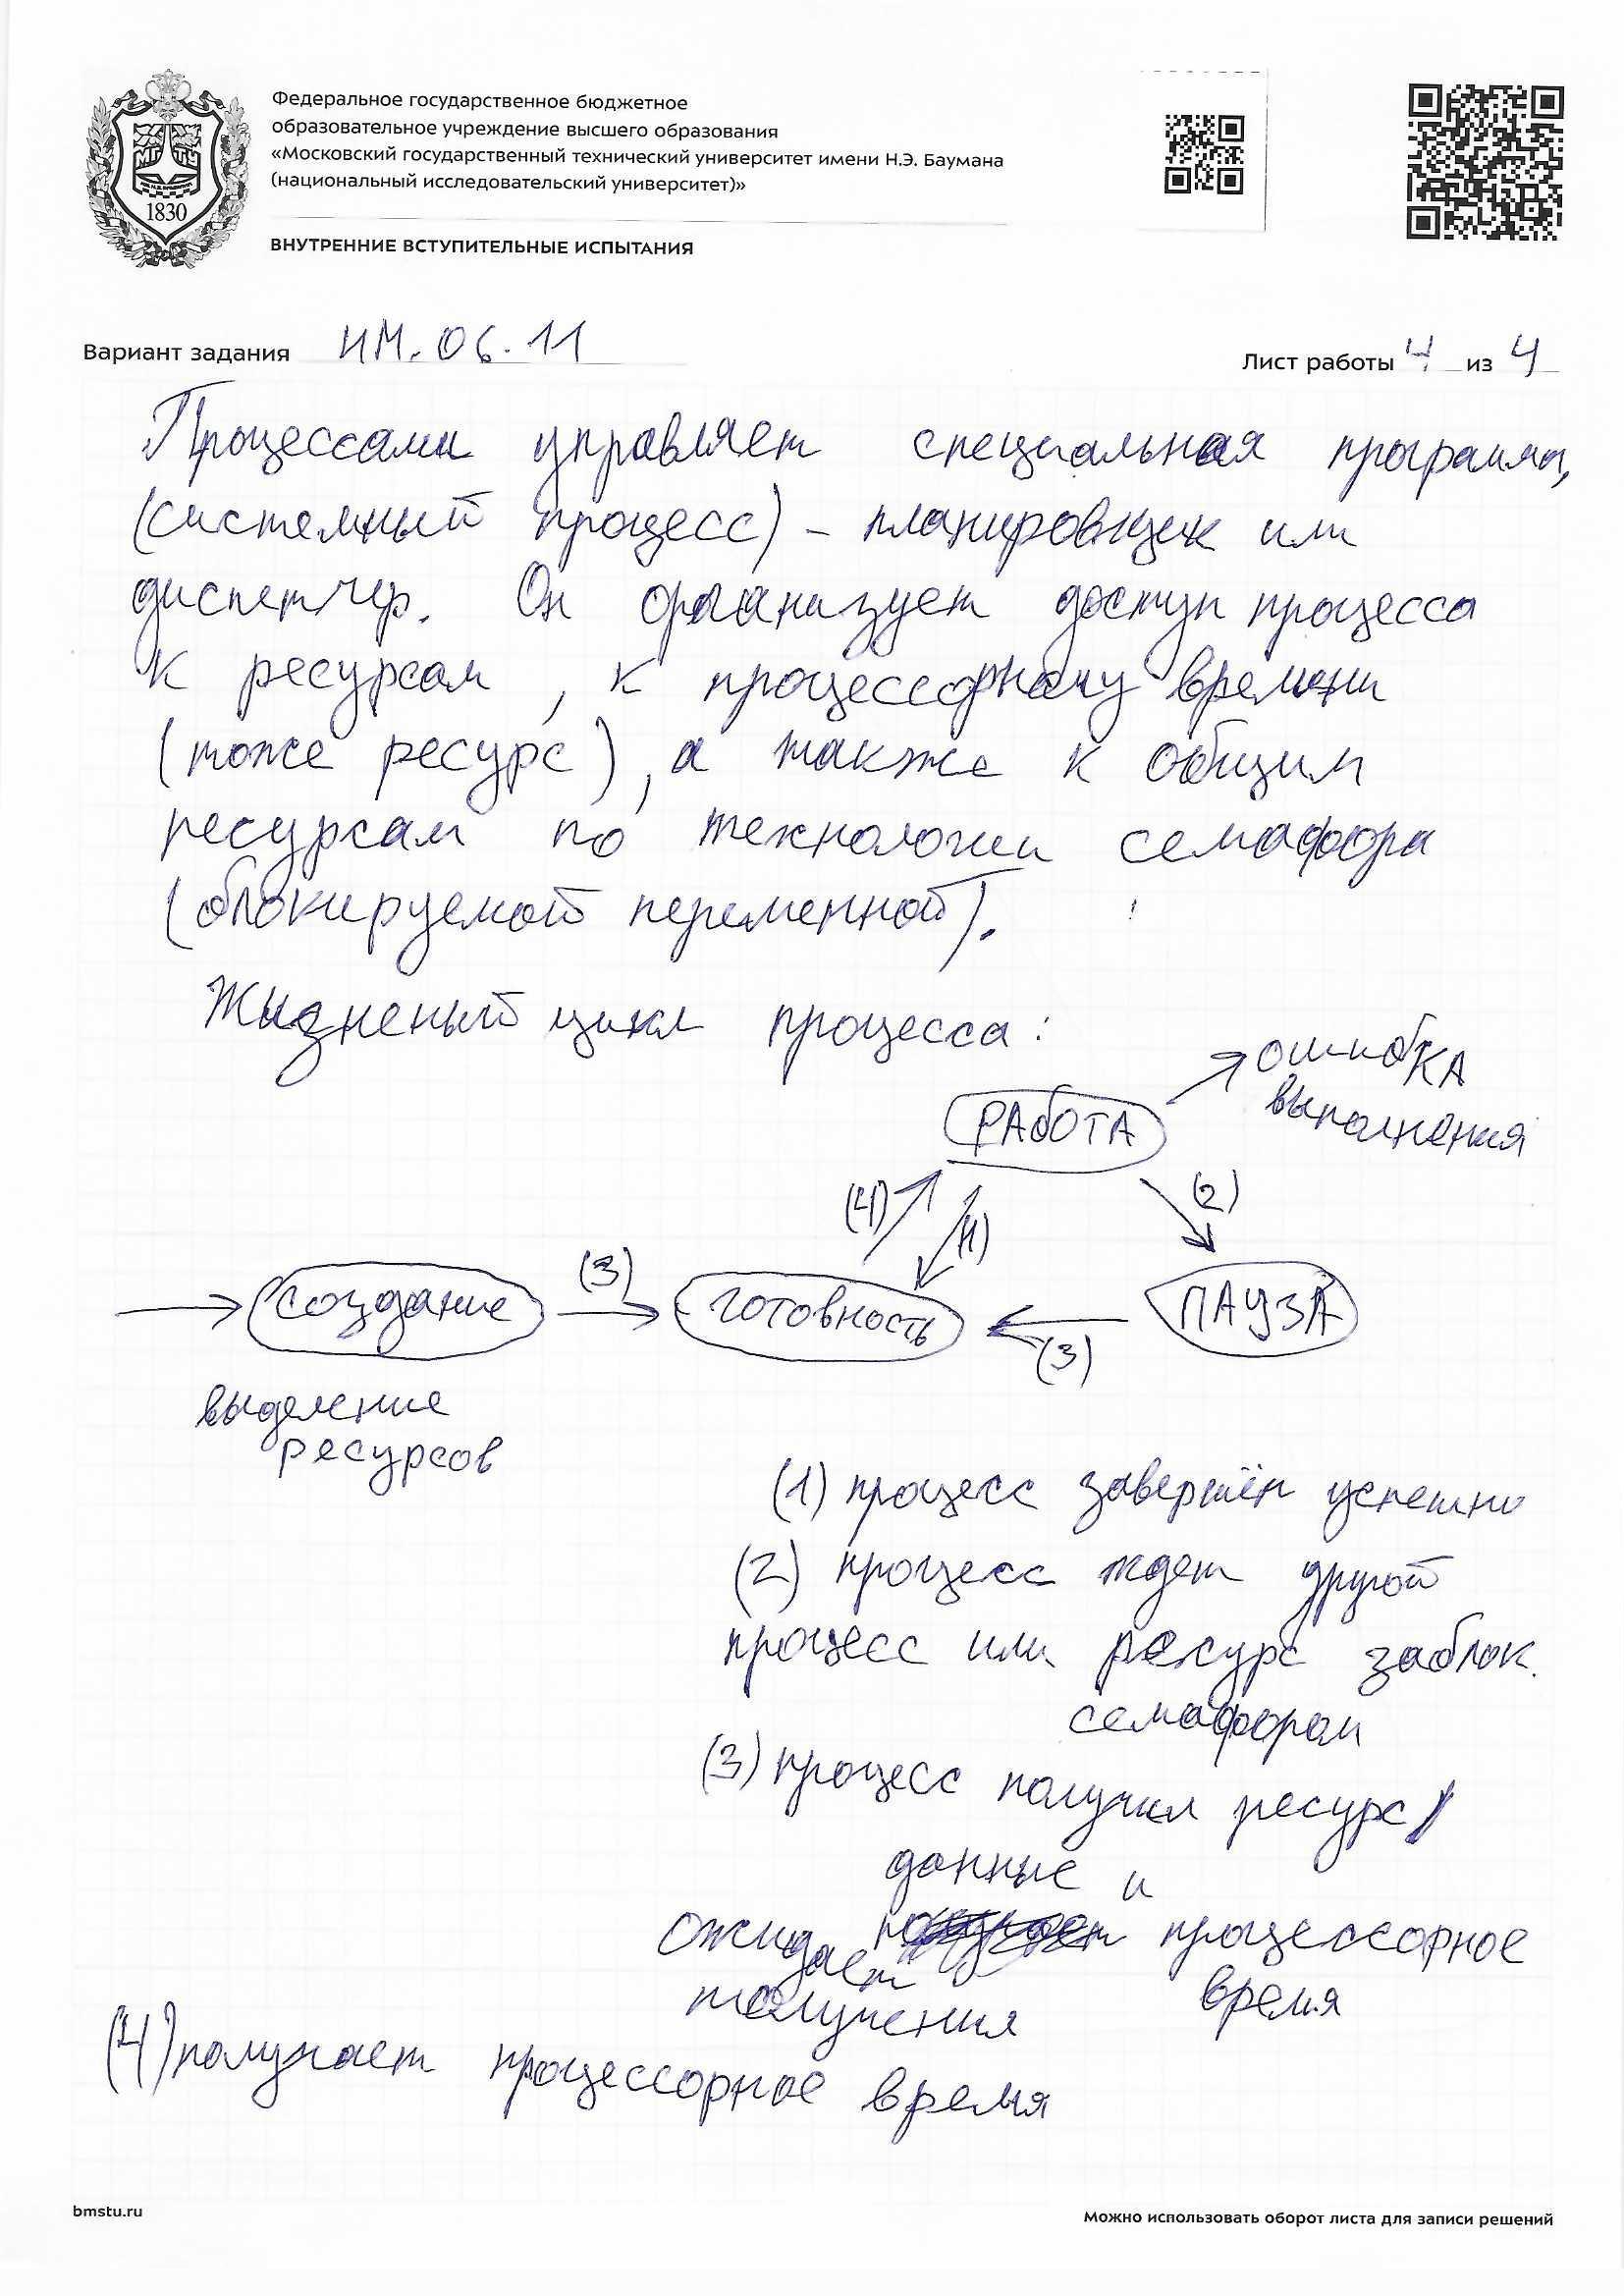 Федеральное государственное бюджетное
образовательное учреждение высшего образования
«Московский государственный технический университет имени Н.Э. Баумана
(национальный исследовательский университет)»
1830
ВНУТРЕННИЕ ВСТУПИТЕЛЬНЫЕ ИСПЫТАНИЯ
Вариант задания ИМ.06.11
Лист работы 4 из 4
Процессами управляет специальная программа,
(системный процесс) – планировщик или
диспетчер. Он организует доступ процесса
к ресурсам, к процессорному времени
(тоже ресурс), а также к общим
ресурсам по технологии семафора
(блокируемой переменной).
Жизненый цикл процесса:
ошибка
выполнения
РАБОТА
(4) (1) (2)
создание (3) готовность (3) ПАУЗА
выделение
ресурсов
(1) процесс завершён успешно
(2) процесс ждет другой
процесс или ресурс заблок.
семафором
(3) процесс получил ресурс/
данные и
ожидает процессорное
получения время
(4) получает процессорное время
bmstu.ru
Можно использовать оборот листа для записи решений